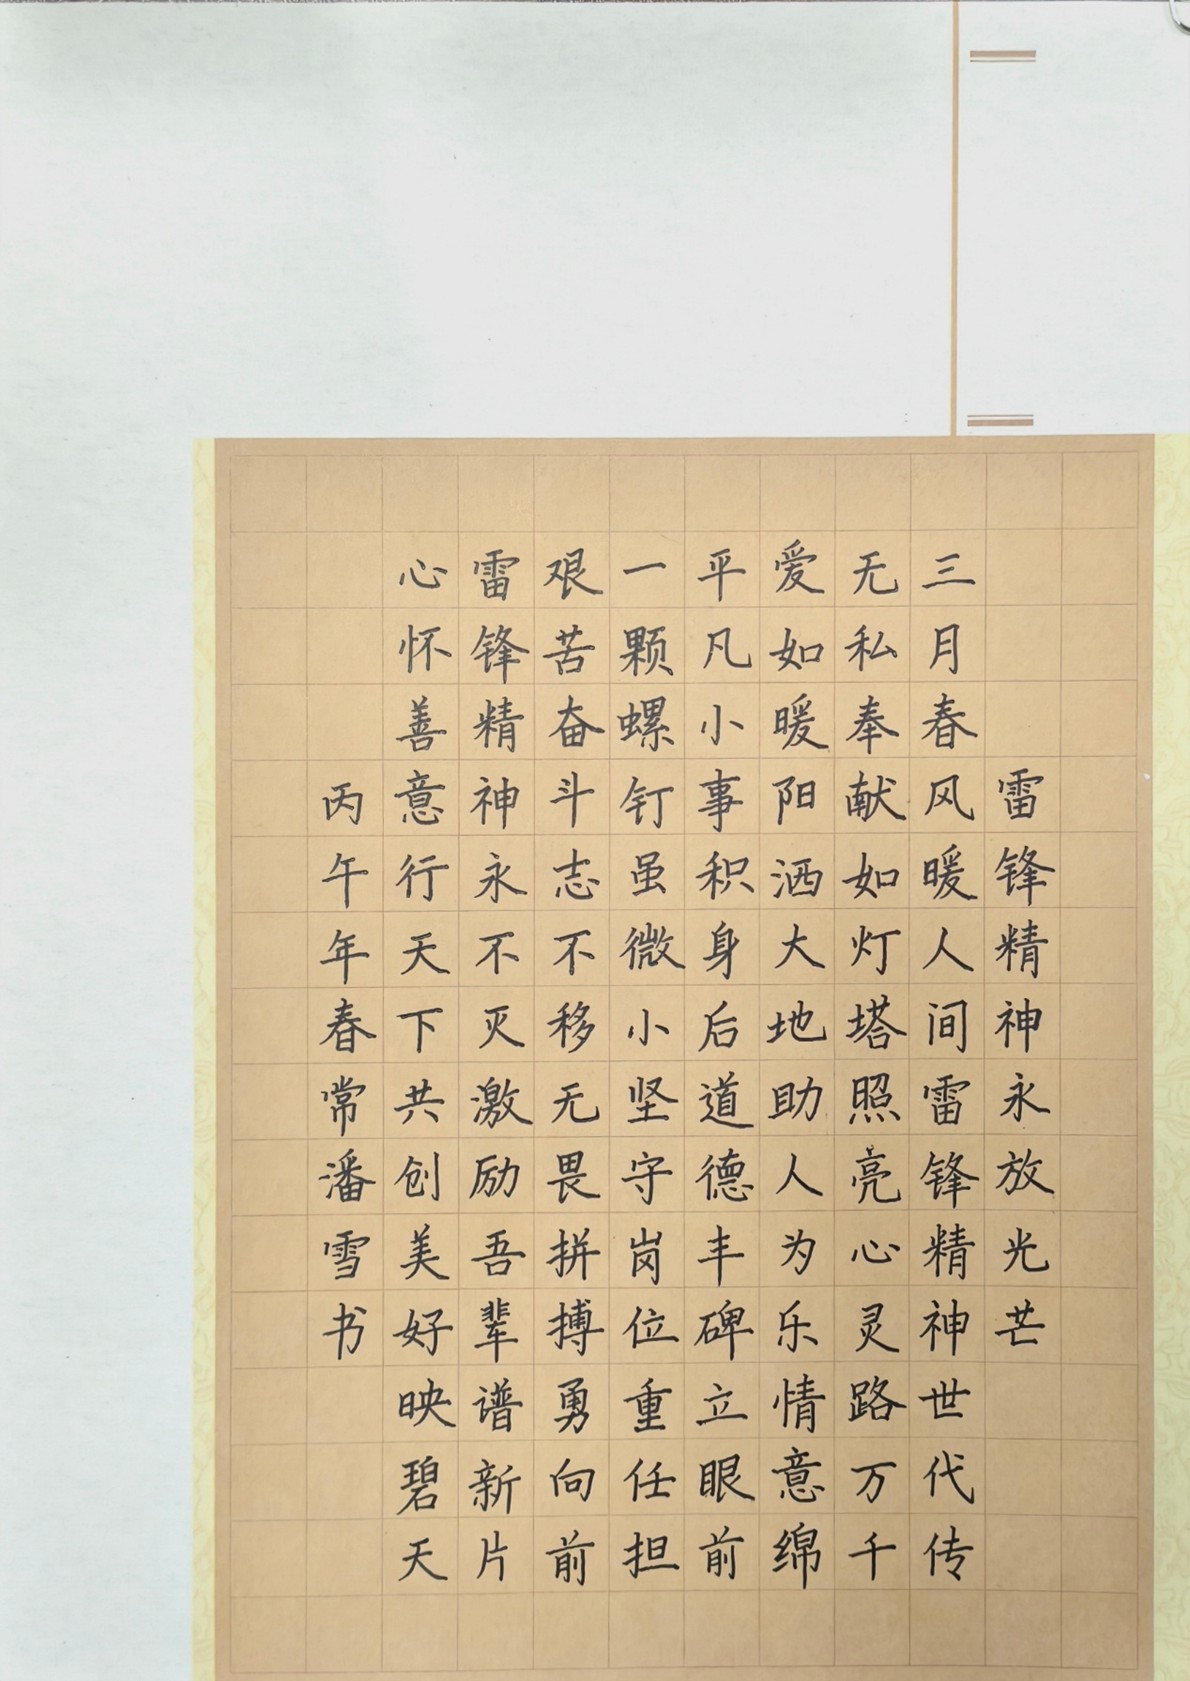 雷锋精神永放光芒
三月春风暖人间雷锋精神世代传
无私奉献如灯塔照亮心灵路万千
爱如暖阳洒大地助人为乐情意绵
平凡小事积身后道德丰碑立眼前
一颗螺钉虽微小坚守岗位重任担
艰苦奋斗志不移无畏拼搏勇向前
雷锋精神永不灭激励吾辈谱新片
心怀善意行天下共创美好映碧天
丙午年春常潘雪书